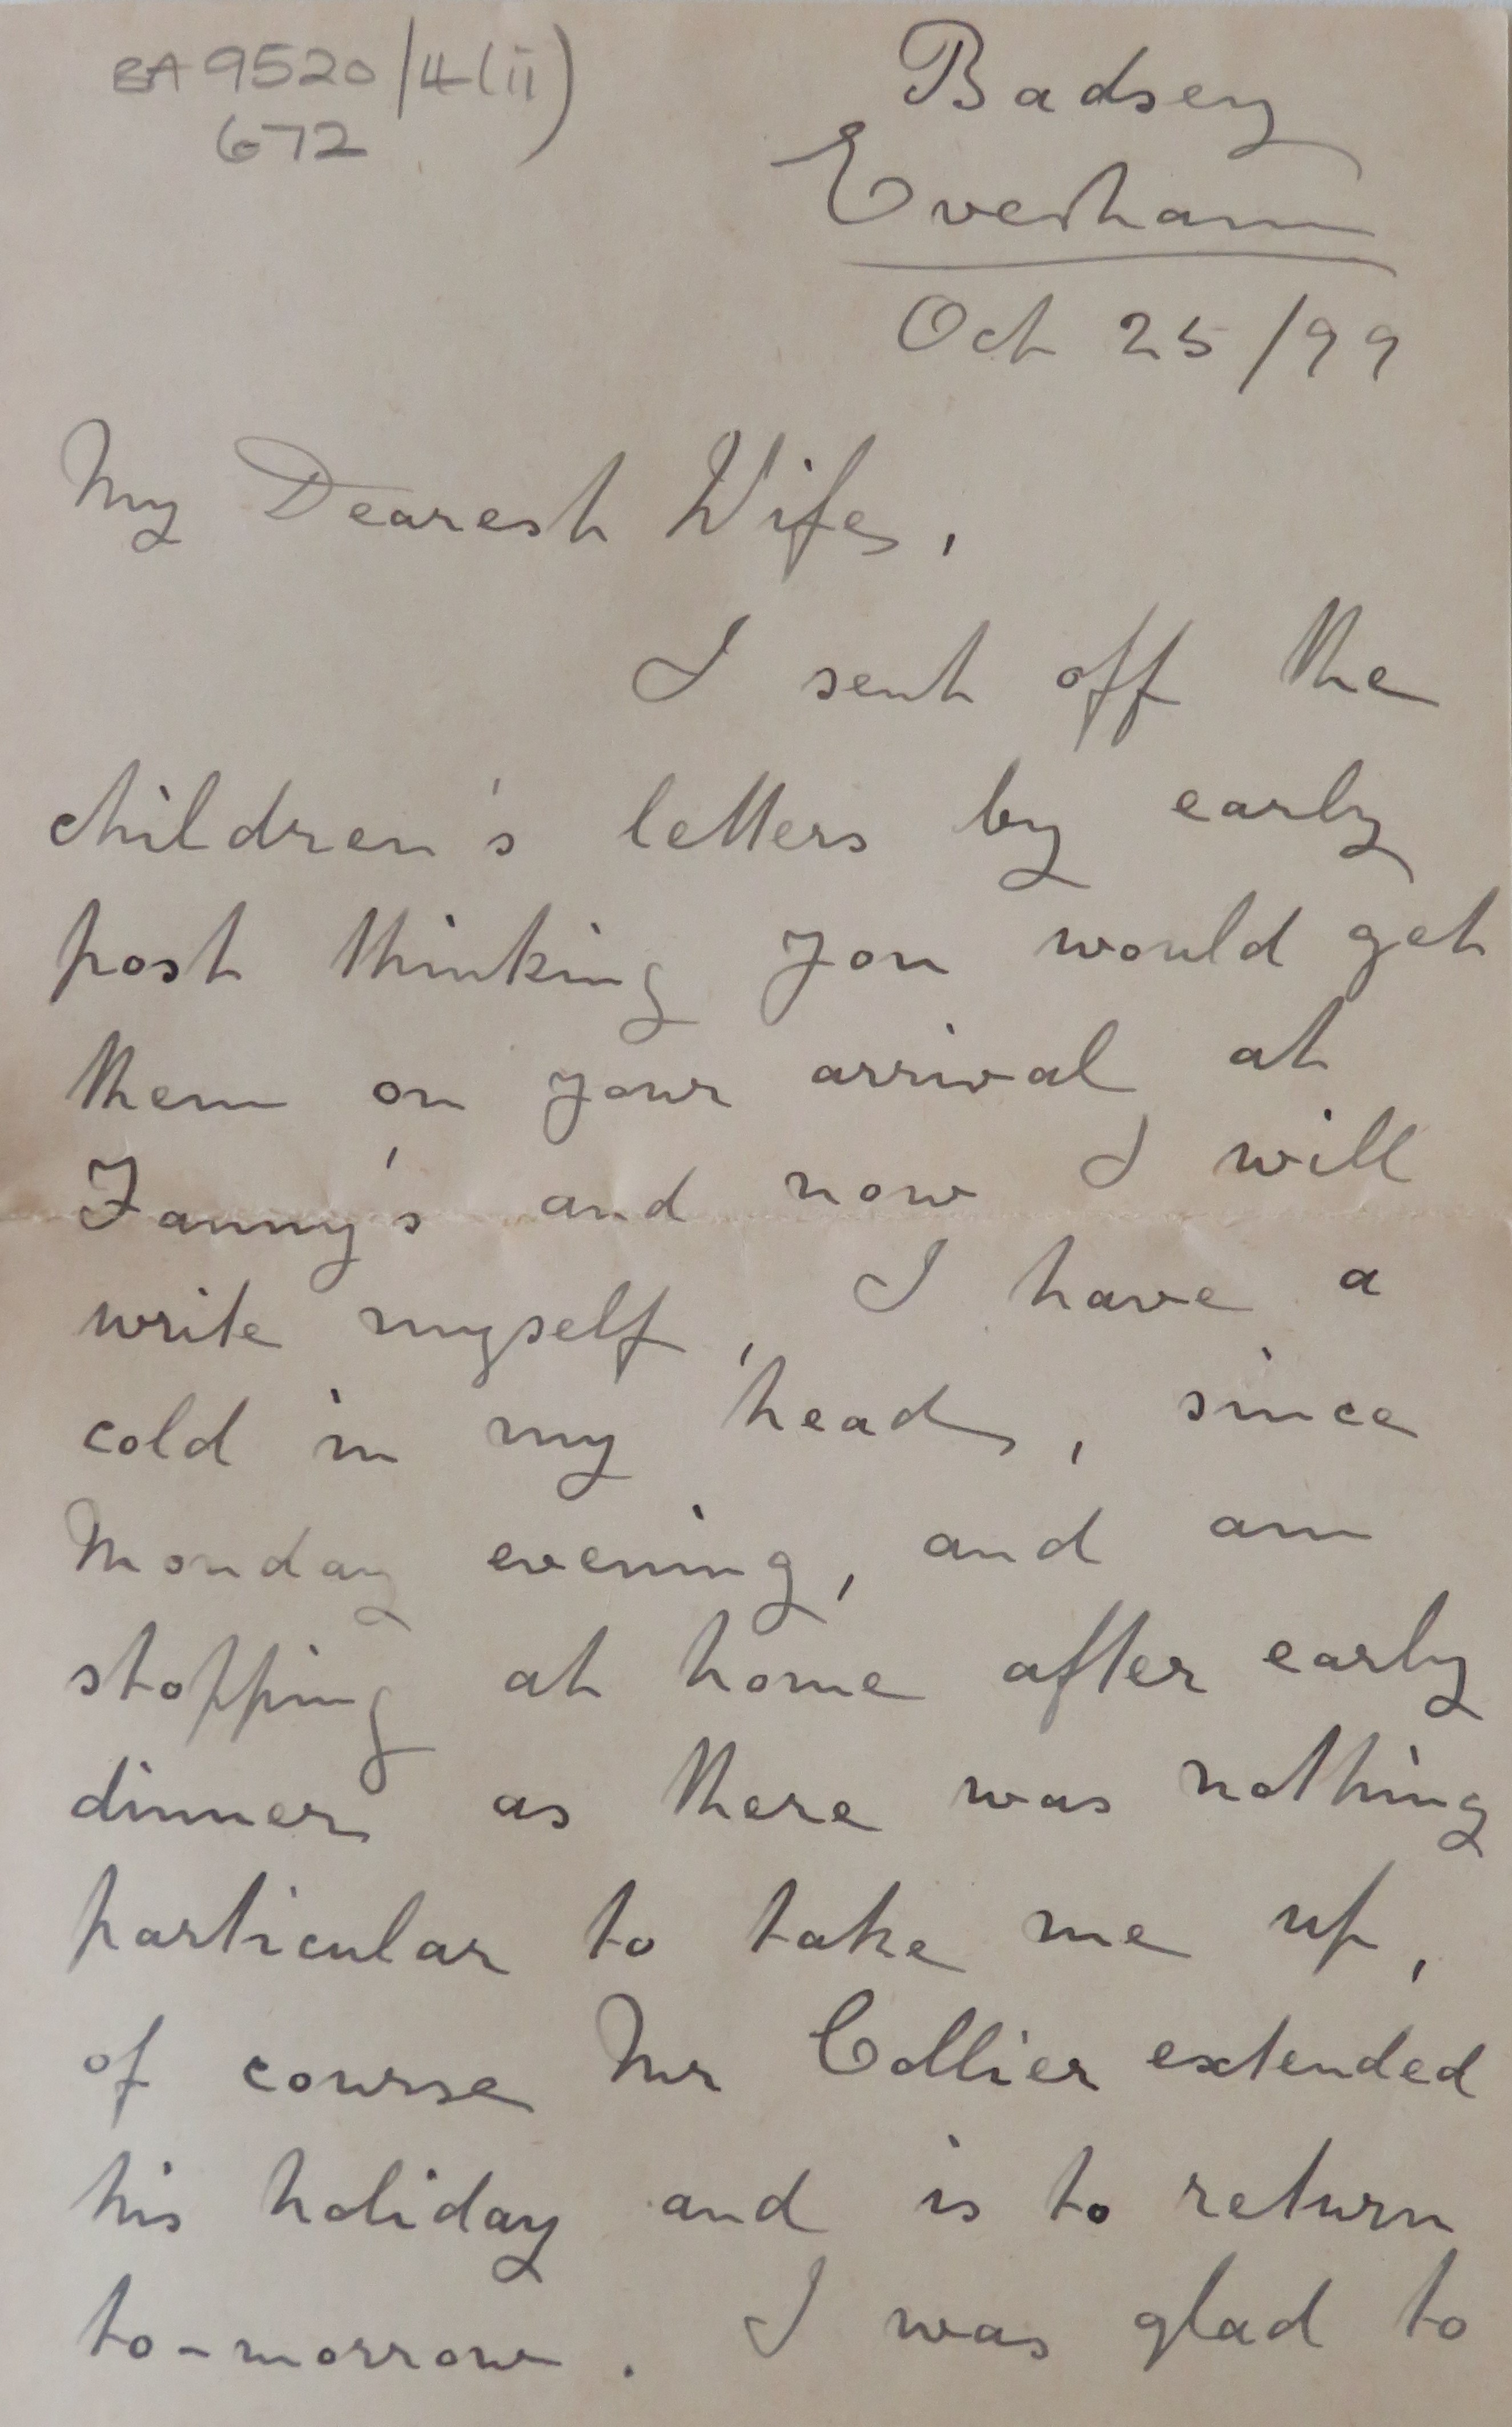 BA 9520/4(ii)
672
Badsey
Evesham
Oct 25/99
My Dearest Wife,
I sent off the
children's letters by early
post thinking you would get
them on your arrival at
Fanny's and now I will
write myself, I have a
cold in my head, since
Monday evening, and am
stopping at home after early
dinner as there was nothing
particular to take me up,
of course Mr Collier extended
his holiday and is to return
to-morrow. I was glad to